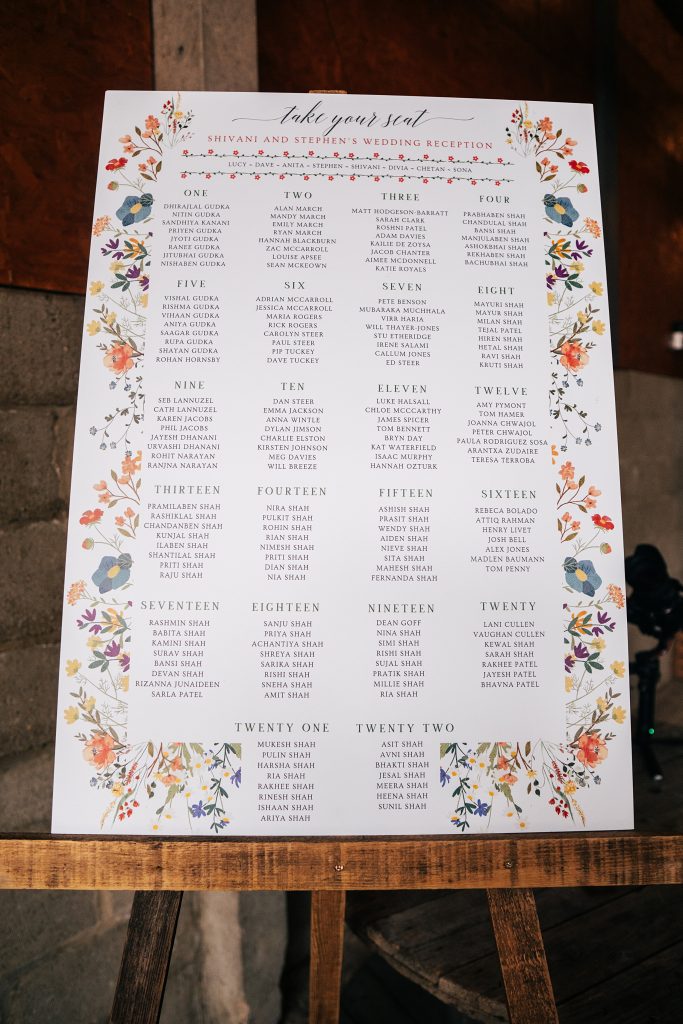 take your seat
SHIVANI AND STEPHEN'S WEDDING RECEPTION
LUCY ~ DAVE ~ ANITA ~ STEPHEN ~ SHIVANI ~ DIVIA ~ CHETAN ~ SONA
ONE
DHIRAJLAL GUDKA
NITIN GUDKA
SANDHIYA KANANI
PRIYEN GUDKA
JYOTI GUDKA
RANEE GUDKA
JITUBHAI GUDKA
NISHABEN GUDKA
TWO
ALAN MARCH
MANDY MARCH
EMILY MARCH
RYAN MARCH
HANNAH BLACKBURN
ZAC MCCARROLL
LOUISE APSEE
SEAN MCKEOWN
THREE
MATT HODGESON-BARRATT
SARAH CLARK
ROSHNI PATEL
ADAM DAVIES
KAILIE DE ZOYSA
JACOB CHANTER
AIMEE MCDONNELL
KATIE ROYALS
FOUR
PRABHABEN SHAH
CHANDULAL SHAH
BANSI SHAH
MANJULABEN SHAH
ASHOKBHAI SHAH
REKHABEN SHAH
BACHUBHAI SHAH
FIVE
VISHAL GUDKA
RISHMA GUDKA
VIHAAN GUDKA
ANIYA GUDKA
SAAGAR GUDKA
RUPA GUDKA
SHAYAN GUDKA
ROHAN HORNSBY
SIX
ADRIAN MCCARROLL
JESSICA MCCARROLL
MARIA ROGERS
RICK ROGERS
CAROLYN STEER
PAUL STEER
PIP TUCKEY
DAVE TUCKEY
SEVEN
PETE BENSON
MUBARAKA MUCHHALA
VIRR HARIA
WILL THAYER-JONES
STU ETHERIDGE
IRENE SALAMI
CALLUM JONES
ED STEER
EIGHT
MAYURI SHAH
MAYUR SHAH
MILAN SHAH
TEJAL PATEL
HIREN SHAH
HETAL SHAH
RAVI SHAH
KRUTI SHAH
NINE
SEB LANNUZEL
CATH LANNUZEL
KAREN JACOBS
PHIL JACOBS
JAYESH DHANANI
URVASHI DHANANI
ROHIT NARAYAN
RANJNA NARAYAN
TEN
DAN STEER
EMMA JACKSON
ANNA WINTLE
DYLAN JIMSON
CHARLIE ELSTON
KIRSTEN JOHNSON
MEG DAVIES
WILL BREEZE
ELEVEN
LUKE HALSALL
CHLOE MCCCARTHY
JAMES SPICER
TOM BENNETT
BRYN DAY
KAT WATERFIELD
ISAAC MURPHY
HANNAH OZTURK
TWELVE
AMY PYMONT
TOM HAMER
JOANNA CHWAJOL
PETER CHWAJOL
PAULA RODRIGUEZ SOSA
ARANTXA ZUDAIRE
TERESA TERROBA
THIRTEEN
PRAMILABEN SHAH
RASHIKLAL SHAH
CHANDANBEN SHAH
KUNJAL SHAH
ILABEN SHAH
SHANTILAL SHAH
PRITI SHAH
RAJU SHAH
FOURTEEN
NIRA SHAH
PULKIT SHAH
ROHIN SHAH
RIAN SHAH
NIMESH SHAH
PRITI SHAH
DIAN SHAH
NIA SHAH
FIFTEEN
ASHISH SHAH
PRASIT SHAH
WENDY SHAH
AIDEN SHAH
NIEVE SHAH
SITA SHAH
MAHESH SHAH
FERNANDA SHAH
SIXTEEN
REBECA BOLADO
ATTIQ RAHMAN
HENRY LIVET
JOSH BELL
ALEX JONES
MADLEN BAUMANN
TOM PENNY
SEVENTEEN
RASHMIN SHAH
BABITA SHAH
KAMINI SHAH
SURAV SHAH
BANSI SHAH
DEVAN SHAH
RIZANNA JUNAIDEEN
SARLA PATEL
EIGHTEEN
SANJU SHAH
PRIYA SHAH
ACHANTIYA SHAH
SHREYA SHAH
SARIKA SHAH
RISHI SHAH
SNEHA SHAH
AMIT SHAH
NINETEEN
DEAN GOFF
NINA SHAH
SIMI SHAH
RISHI SHAH
SUJAL SHAH
PRATIK SHAH
MILLIE SHAH
RIA SHAH
TWENTY
LANI CULLEN
VAUGHAN CULLEN
KEWAL SHAH
SARAH SHAH
RAKHEE PATEL
JAYESH PATEL
BHAVNA PATEL
TWENTY ONE
MUKESH SHAH
PULIN SHAH
HARSHA SHAH
RIA SHAH
RAKHEE SHAH
RINESH SHAH
ISHAAN SHAH
ARIYA SHAH
TWENTY TWO
ASIT SHAH
AVNI SHAH
BHAKTI SHAH
JESAL SHAH
MEERA SHAH
HEENA SHAH
SUNIL SHAH